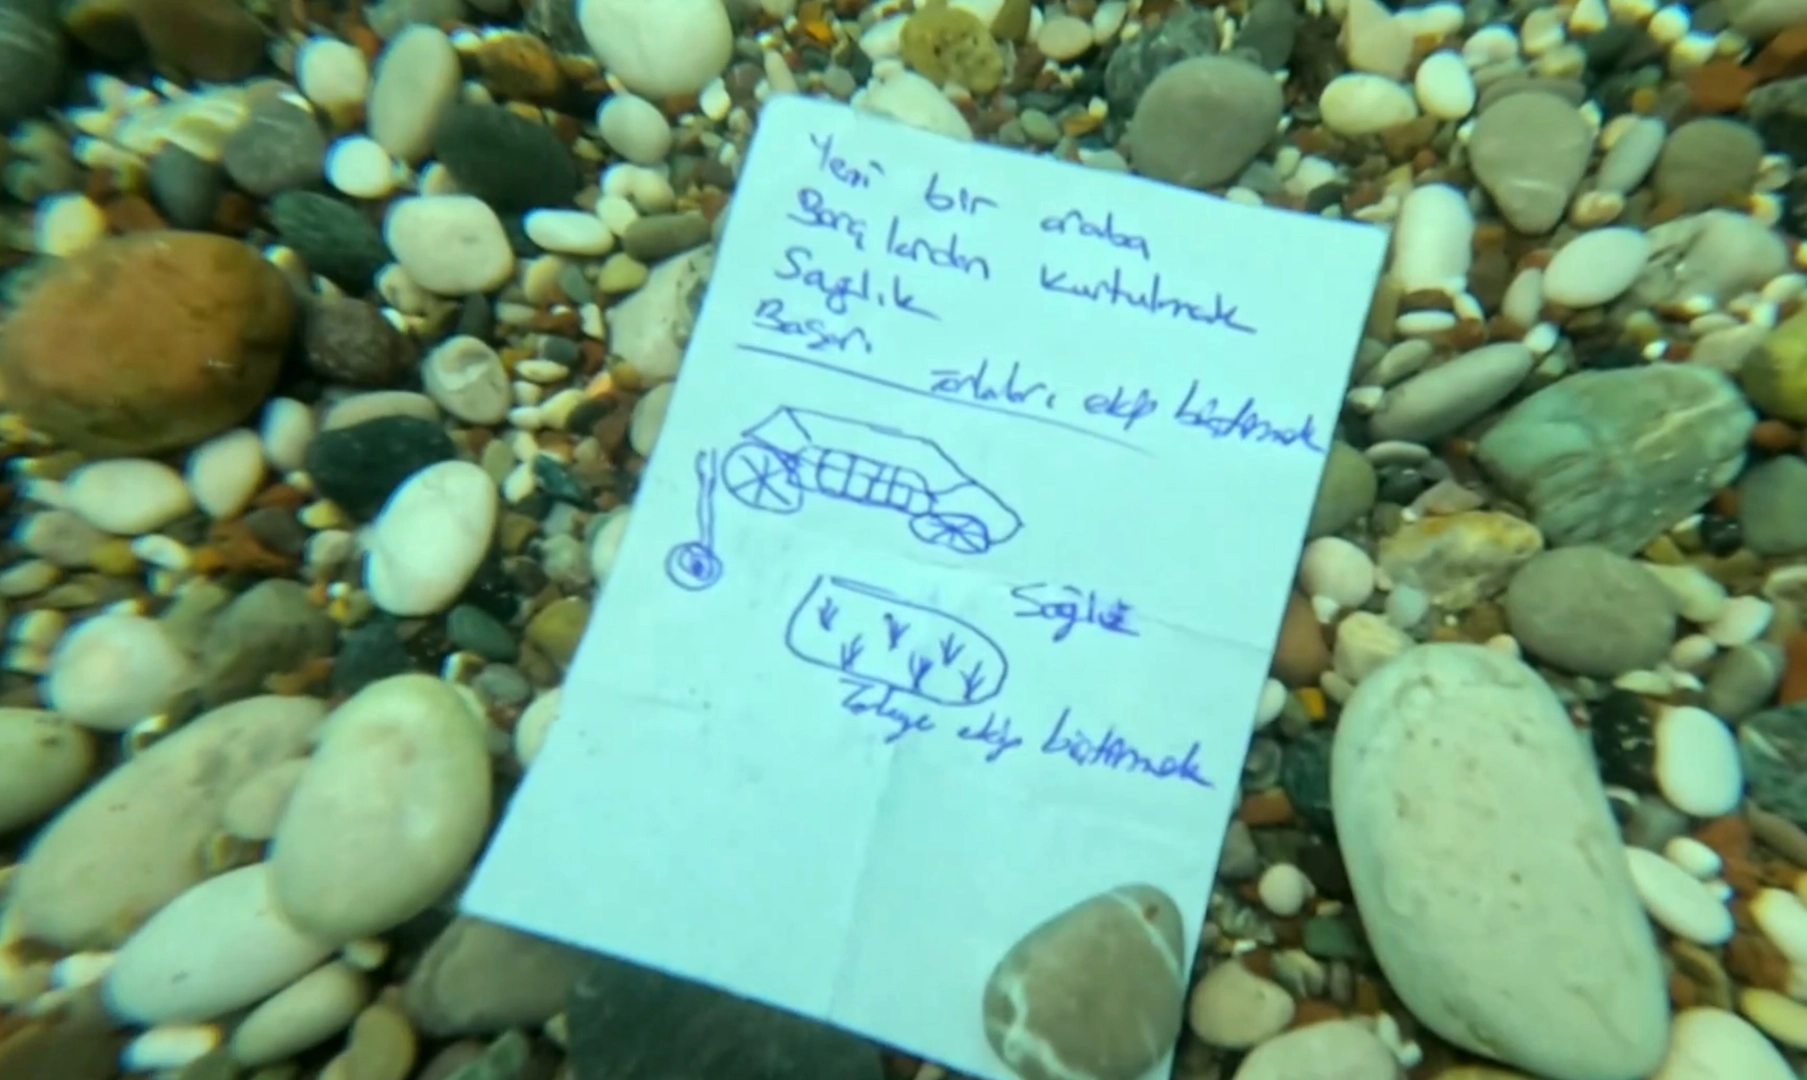 Yeni bir araba
Borçlardan kurtulmak
Sağlık
Başarı
Tarlaları ekip biçtirmek
Sağlık
ekip biçtirmek